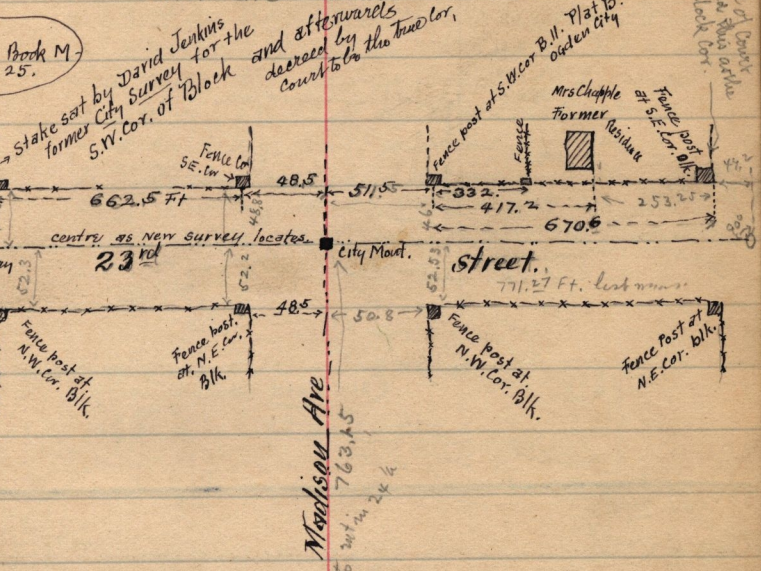 Book M-
25.
Stake set by David Jenkins
former City Survey for the
S.W. Cor. of Block
and afterwards
decreed by
Court to be the true Cor.
Fence post at S.W. Cor B.11. Plat
Ogden City
Mrs Chapple
Former
Residence
Fence
Fence post
at S.E. Cor. blk.
of Court
lock Cor.
Fence Co
S.E. cor
48.5
51.5
332.
662.5 Ft
417.2
253.25
670.6
centre as New survey locates
City Mont.
23rd
Street.
52.3
52.2
52.53
771.27 Ft. last meas.
48.5
50.8
Fence post at
N.W. Cor.
Blk.
Fence post.
at. N.E. Cor.
Blk.
Fence post at
N.W. Cor. Blk.
Fence Post at
N.E. Cor. blk.
Madison Ave
763.25